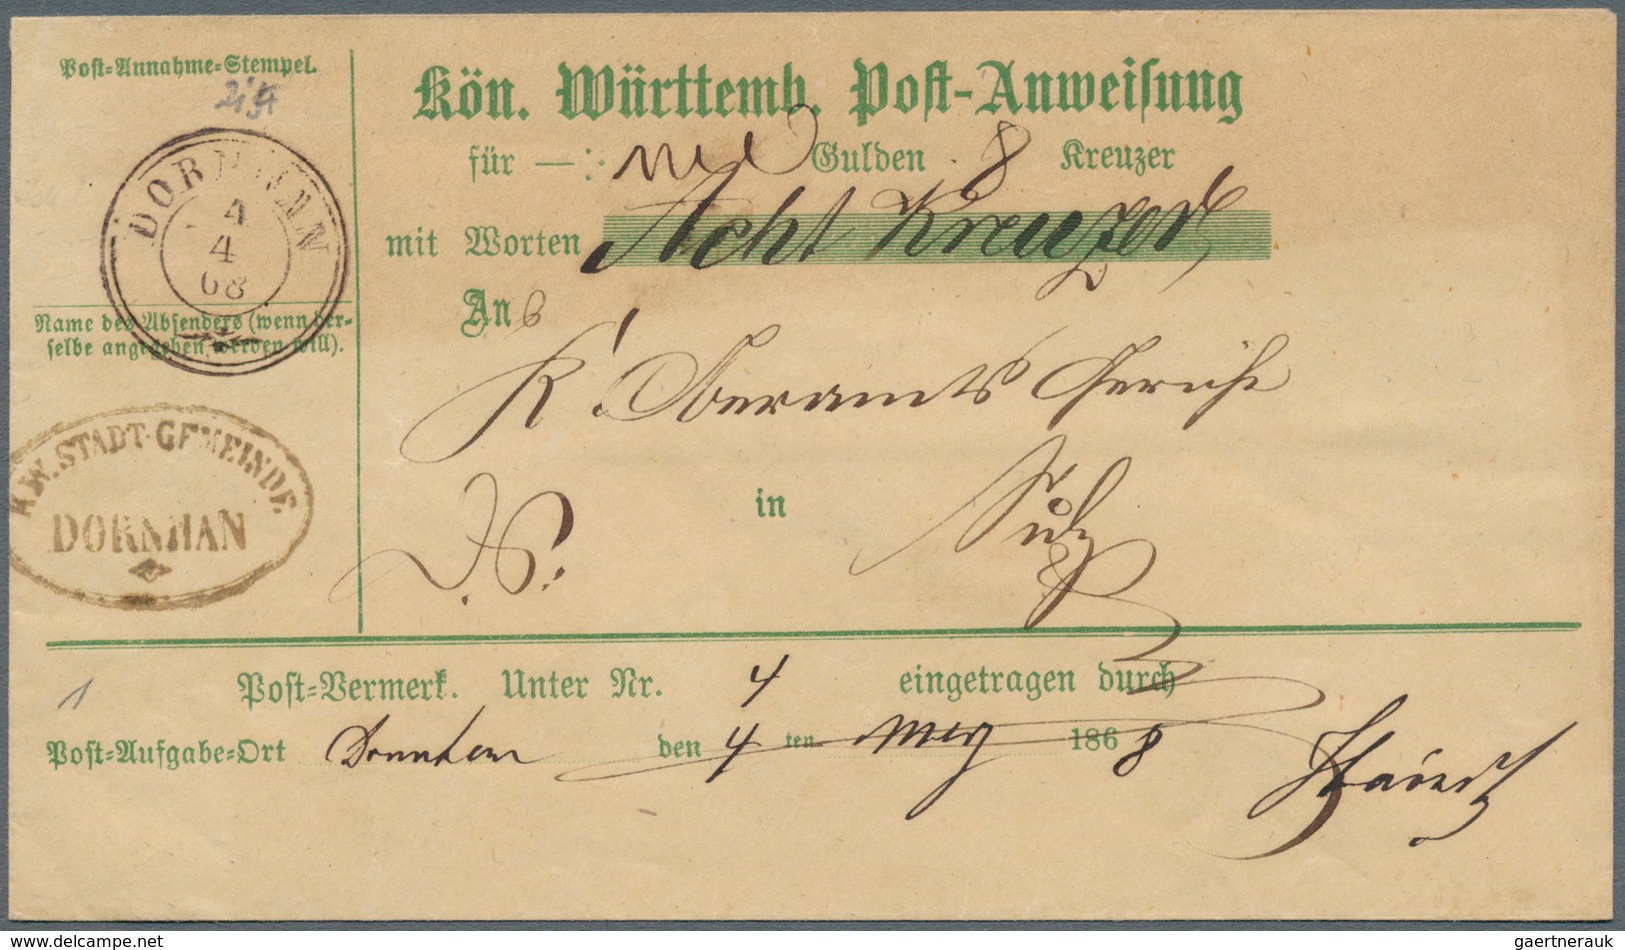 Post-Annahme-Stempel.
Kön. Württemb. Post-Anweisung
für —:  Gulden 8 Kreuzer
mit Worten Acht Kreuzer
DORNHAN
4
4
68
An
Name des Absenders (wenn der-
selbe angegeben werden will).
K. Oberamts Gericht
K.W. STADT-GEMEINDE.
DORNHAN
in Sulz
D. S.
Post-Vermerk. Unter Nr. 4 eingetragen durch
Post-Aufgabe-Ort Dornhan den 4 ten 1868
1
delcampe.net
gaertnerauk